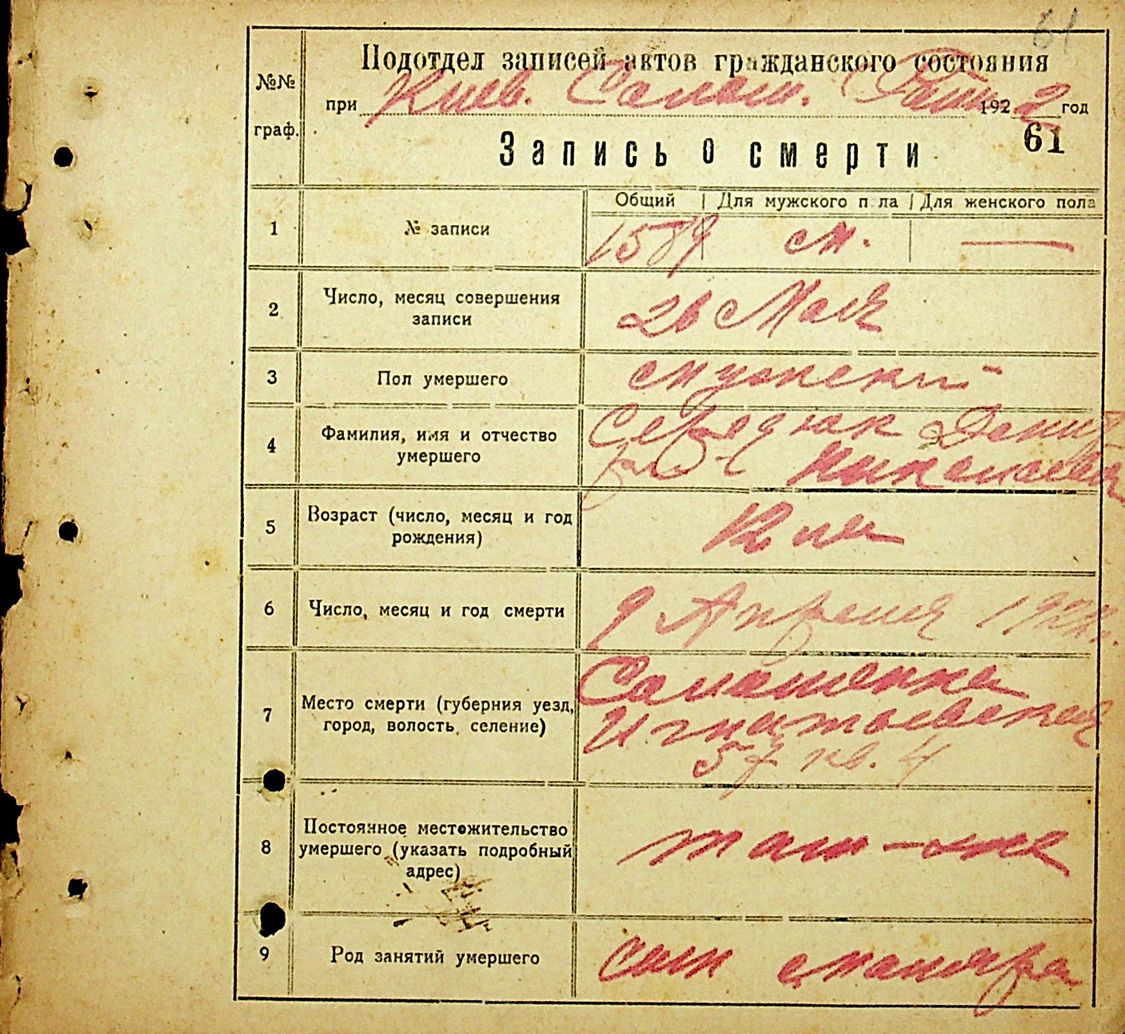 61
Подотдел записей актов гражданского состояния
№№
граф.
при Киев. Солом. 1922 год
61
Запись о смерти
Общий | Для мужского п ла | Для женского пола
1 № записи 1589 м. —
2 Число, месяц совершения
записи
26 Мая
3 Пол умершего мужский
4 Фамилия, имя и отчество
умершего
Середюк Денис
Николаевич
5 Возраст (число, месяц и год
рождения)
12 лет
6 Число, месяц и год смерти 9 Апреля 1922 г.
7 Место смерти (губерния уезд,
город, волость, селение)
Соломенка
Игнатьевская
57 кв. 4
8 Постоянное местожительство
умершего (указать подробный
адрес)
там-же
9 Род занятий умершего сын столяра